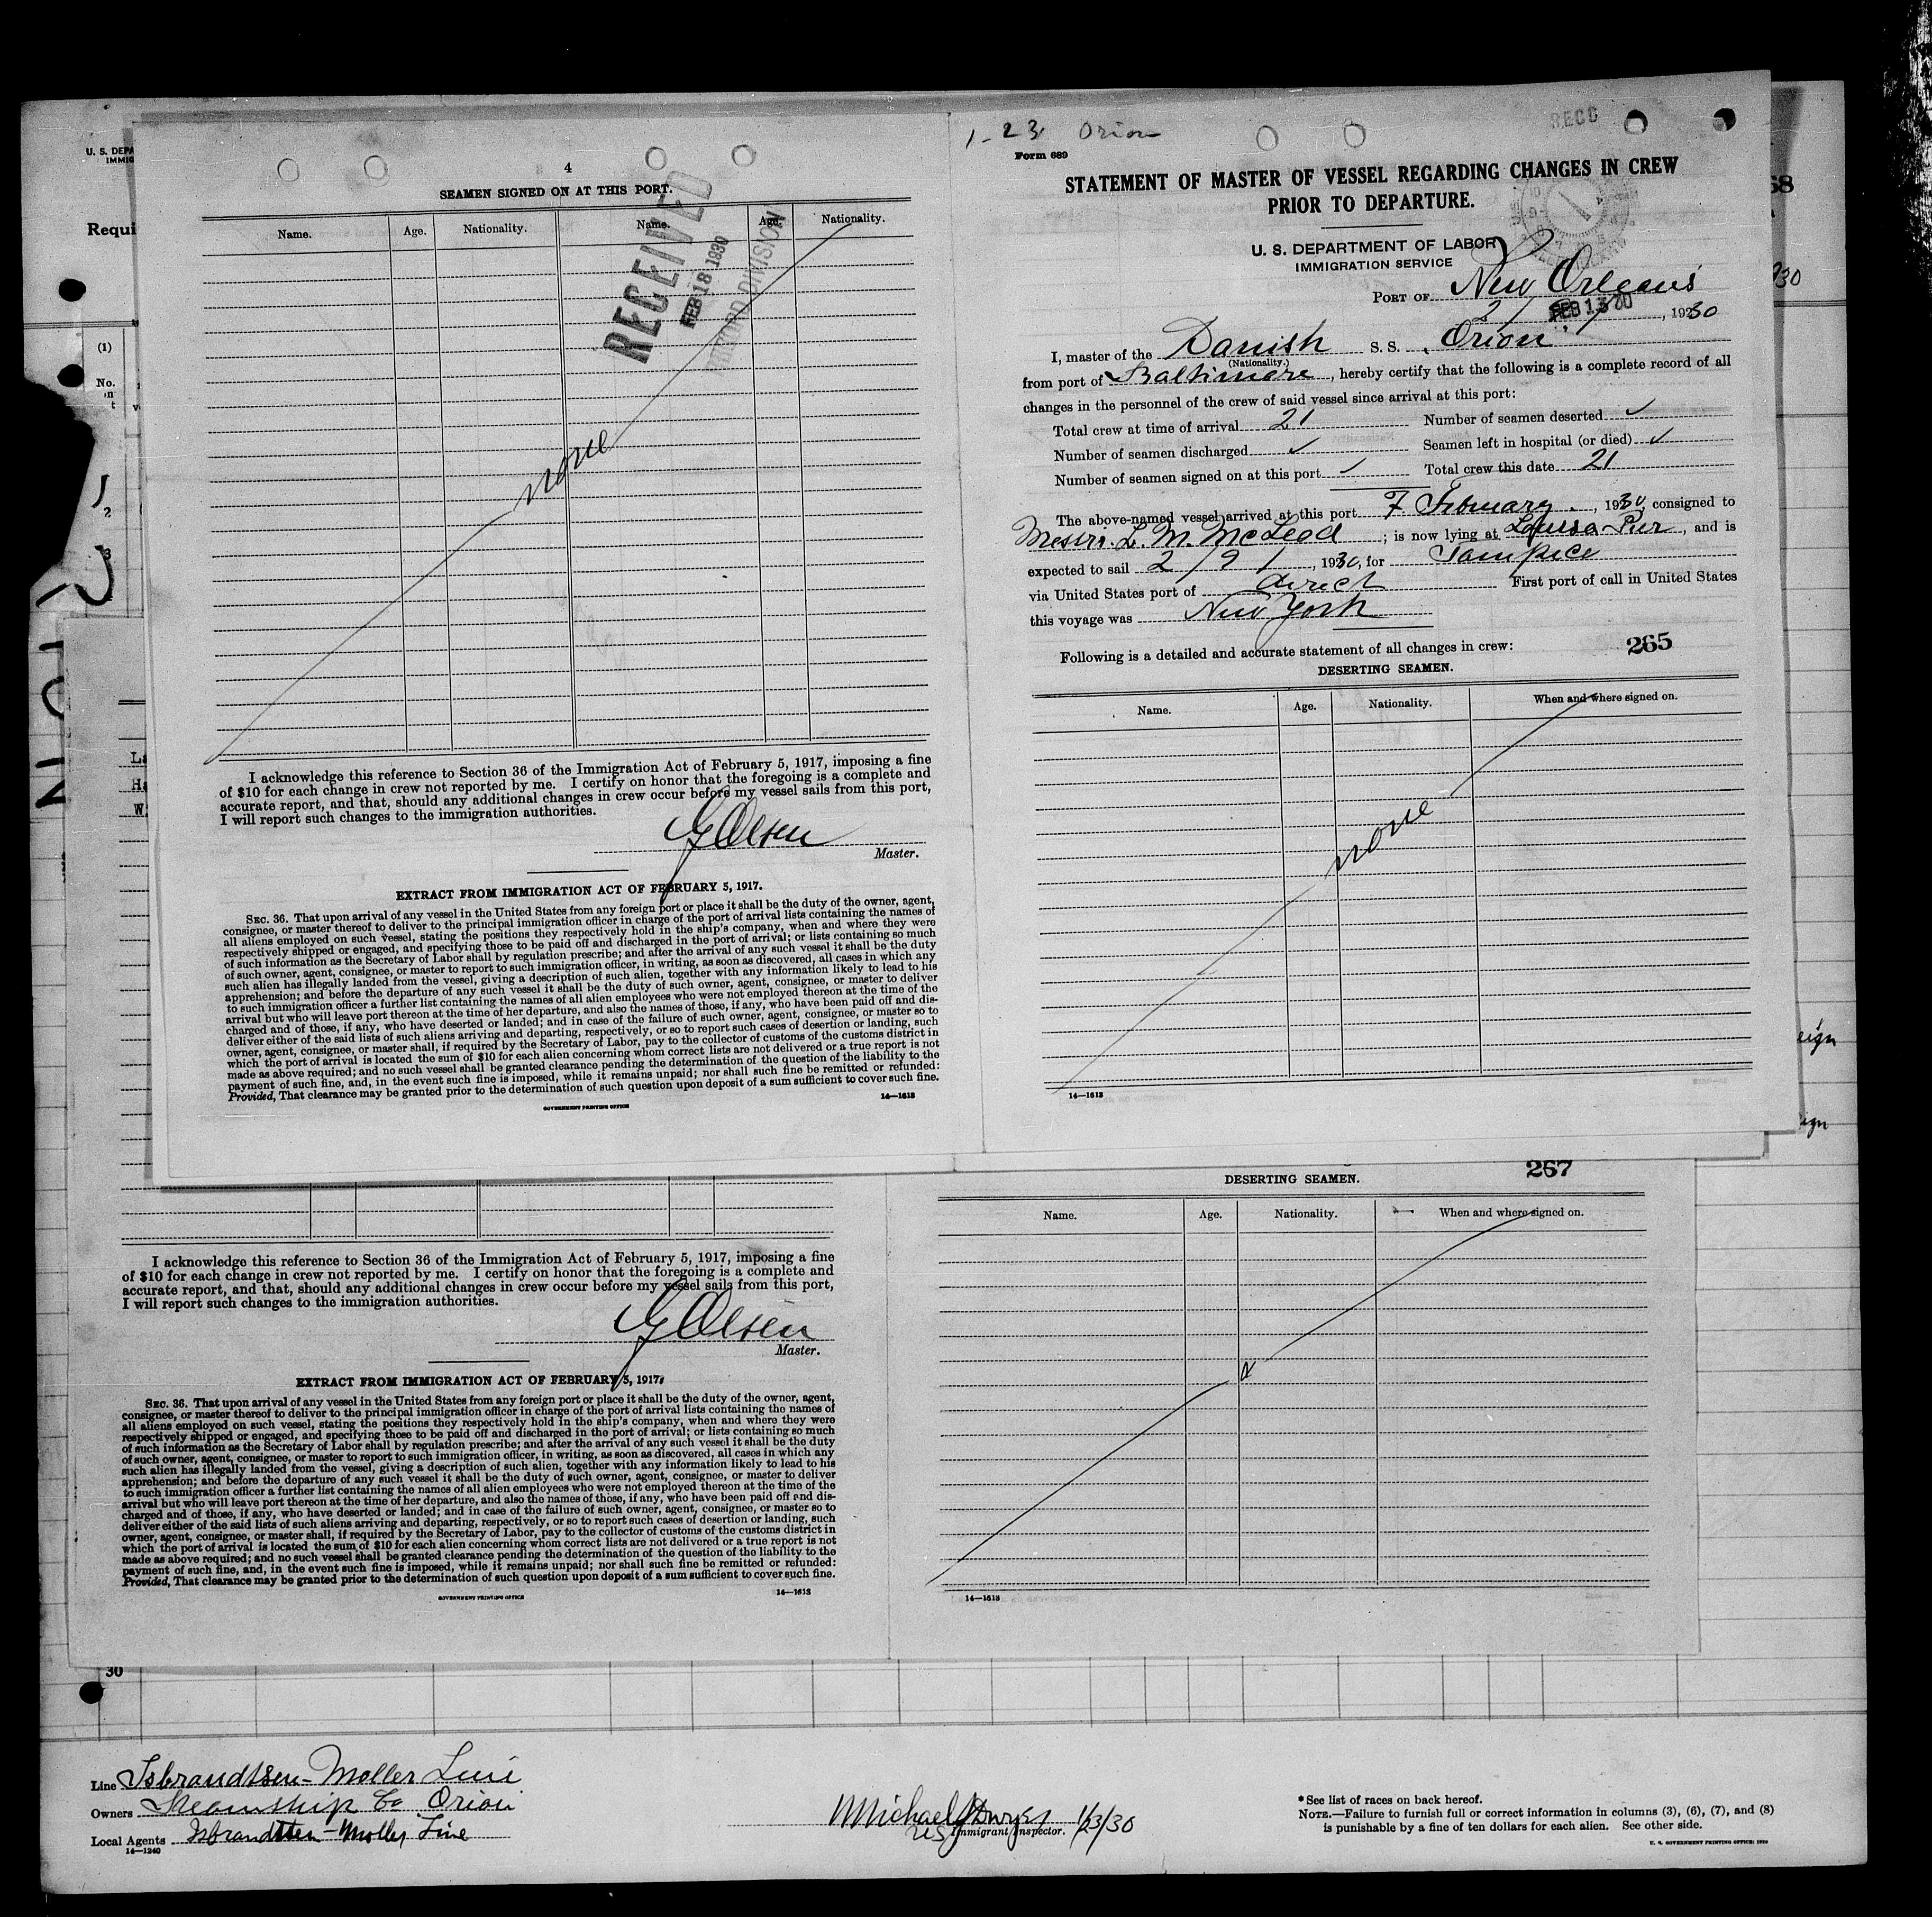 U. S. DEPA
IMMIG
Requi
(1)
No.
on
t
2
3
La
Ha
W
30
4
SEAMEN SIGNED ON AT THIS PORT.
Name. Age. Nationality. Name. Age. Nationality.
RECEIVED
FEB 18 1930
RECORD DIVISION
none
I acknowledge this reference to Section 36 of the Immigration Act of February 5, 1917, imposing a fine
of $10 for each change in crew not reported by me. I certify on honor that the foregoing is a complete and
accurate report, and that, should any additional changes in crew occur before my vessel sails from this port,
I will report such changes to the immigration authorities.
G Olsen
Master.
EXTRACT FROM IMMIGRATION ACT OF FEBRUARY 5, 1917.
SEC. 36. That upon arrival of any vessel in the United States from any foreign port or place it shall be the duty of the owner, agent,
consignee, or master thereof to deliver to the principal immigration officer in charge of the port of arrival lists containing the names of
all aliens employed on such vessel, stating the positions they respectively hold in the ship's company, when and where they were
respectively shipped or engaged, and specifying those to be paid off and discharged in the port of arrival; or lists containing so much
of such information as the Secretary of Labor shall by regulation prescribe; and after the arrival of any such vessel it shall be the duty
of such owner, agent, consignee, or master to report to such immigration officer, in writing, as soon as discovered, all cases in which any
such alien has illegally landed from the vessel, giving a description of such alien, together with any information likely to lead to his
apprehension; and before the departure of any such vessel it shall be the duty of such owner, agent, consignee, or master to deliver
to such immigration officer a further list containing the names of all alien employees who were not employed thereon at the time of the
arrival but who will leave port thereon at the time of her departure, and also the names of those, if any, who have been paid off and dis-
charged and of those, if any, who have deserted or landed; and in case of the failure of such owner, agent, consignee, or master so to
deliver either of the said lists of such aliens arriving and departing, respectively, or so to report such cases of desertion or landing, such
owner, agent, consignee, or master shall, if required by the Secretary of Labor, pay to the collector of customs of the customs district in
which the port of arrival is located the sum of $10 for each alien concerning whom correct lists are not delivered or a true report is not
made as above required; and no such vessel shall be granted clearance pending the determination of the question of the liability to the
payment of such fine, and, in the event such fine is imposed, while it remains unpaid; nor shall such fine be remitted or refunded:
Provided, That clearance may be granted prior to the determination of such question upon deposit of a sum sufficient to cover such fine.
GOVERNMENT PRINTING OFFICE
14—1613
1-23 Orion
RECD
Form 689
STATEMENT OF MASTER OF VESSEL REGARDING CHANGES IN CREW
PRIOR TO DEPARTURE.
U. S. DEPARTMENT OF LABOR
IMMIGRATION SERVICE
PORT OF New Orleans
FEB 13 30
, 1930
I, master of the Danish S. S. Orion
(Nationality.)
from port of Baltimore, hereby certify that the following is a complete record of all
changes in the personnel of the crew of said vessel since arrival at this port:
Total crew at time of arrival 21 Number of seamen deserted ✓
Number of seamen discharged ✓ Seamen left in hospital (or died) ✓
Number of seamen signed on at this port ✓ Total crew this date 21
The above-named vessel arrived at this port 7 February, 1930, consigned to
Messrs. L. M. McLeod; is now lying at Louisa Pier, and is
expected to sail 2/9/, 1930, for Tampico
via United States port of direct First port of call in United States
this voyage was New York
Following is a detailed and accurate statement of all changes in crew:
265
DESERTING SEAMEN.
Name. Age. Nationality. When and where signed on.
none
14—1613
68
930
eign
ign
I acknowledge this reference to Section 36 of the Immigration Act of February 5, 1917, imposing a fine
of $10 for each change in crew not reported by me. I certify on honor that the foregoing is a complete and
accurate report, and that, should any additional changes in crew occur before my vessel sails from this port,
I will report such changes to the immigration authorities.
G Olsen
Master.
EXTRACT FROM IMMIGRATION ACT OF FEBRUARY 5, 1917.
SEC. 36. That upon arrival of any vessel in the United States from any foreign port or place it shall be the duty of the owner, agent,
consignee, or master thereof to deliver to the principal immigration officer in charge of the port of arrival lists containing the names of
all aliens employed on such vessel, stating the positions they respectively hold in the ship's company, when and where they were
respectively shipped or engaged, and specifying those to be paid off and discharged in the port of arrival; or lists containing so much
of such information as the Secretary of Labor shall by regulation prescribe; and after the arrival of any such vessel it shall be the duty
of such owner, agent, consignee, or master to report to such immigration officer, in writing, as soon as discovered, all cases in which any
such alien has illegally landed from the vessel, giving a description of such alien, together with any information likely to lead to his
apprehension; and before the departure of any such vessel it shall be the duty of such owner, agent, consignee, or master to deliver
to such immigration officer a further list containing the names of all alien employees who were not employed thereon at the time of the
arrival but who will leave port thereon at the time of her departure, and also the names of those, if any, who have been paid off and dis-
charged and of those, if any, who have deserted or landed; and in case of the failure of such owner, agent, consignee, or master so to
deliver either of the said lists of such aliens arriving and departing, respectively, or so to report such cases of desertion or landing, such
owner, agent, consignee, or master shall, if required by the Secretary of Labor, pay to the collector of customs of the customs district in
which the port of arrival is located the sum of $10 for each alien concerning whom correct lists are not delivered or a true report is not
made as above required; and no such vessel shall be granted clearance pending the determination of the question of the liability to the
payment of such fine, and, in the event such fine is imposed, while it remains unpaid; nor shall such fine be remitted or refunded:
Provided, That clearance may be granted prior to the determination of such question upon deposit of a sum sufficient to cover such fine.
GOVERNMENT PRINTING OFFICE
14—1613
267
DESERTING SEAMEN.
Name. Age. Nationality. When and where signed on.
14—1613
Line Isbrandtsen-Moller Line
Owners Steamship Co Orion
Local Agents Isbrandtsen-Moller Line
14—1240
Michael 1/23/30
US Immigrant Inspector.
*See list of races on back hereof.
NOTE.—Failure to furnish full or correct information in columns (3), (6), (7), and (8)
is punishable by a fine of ten dollars for each alien. See other side.
U. S. GOVERNMENT PRINTING OFFICE: 1929